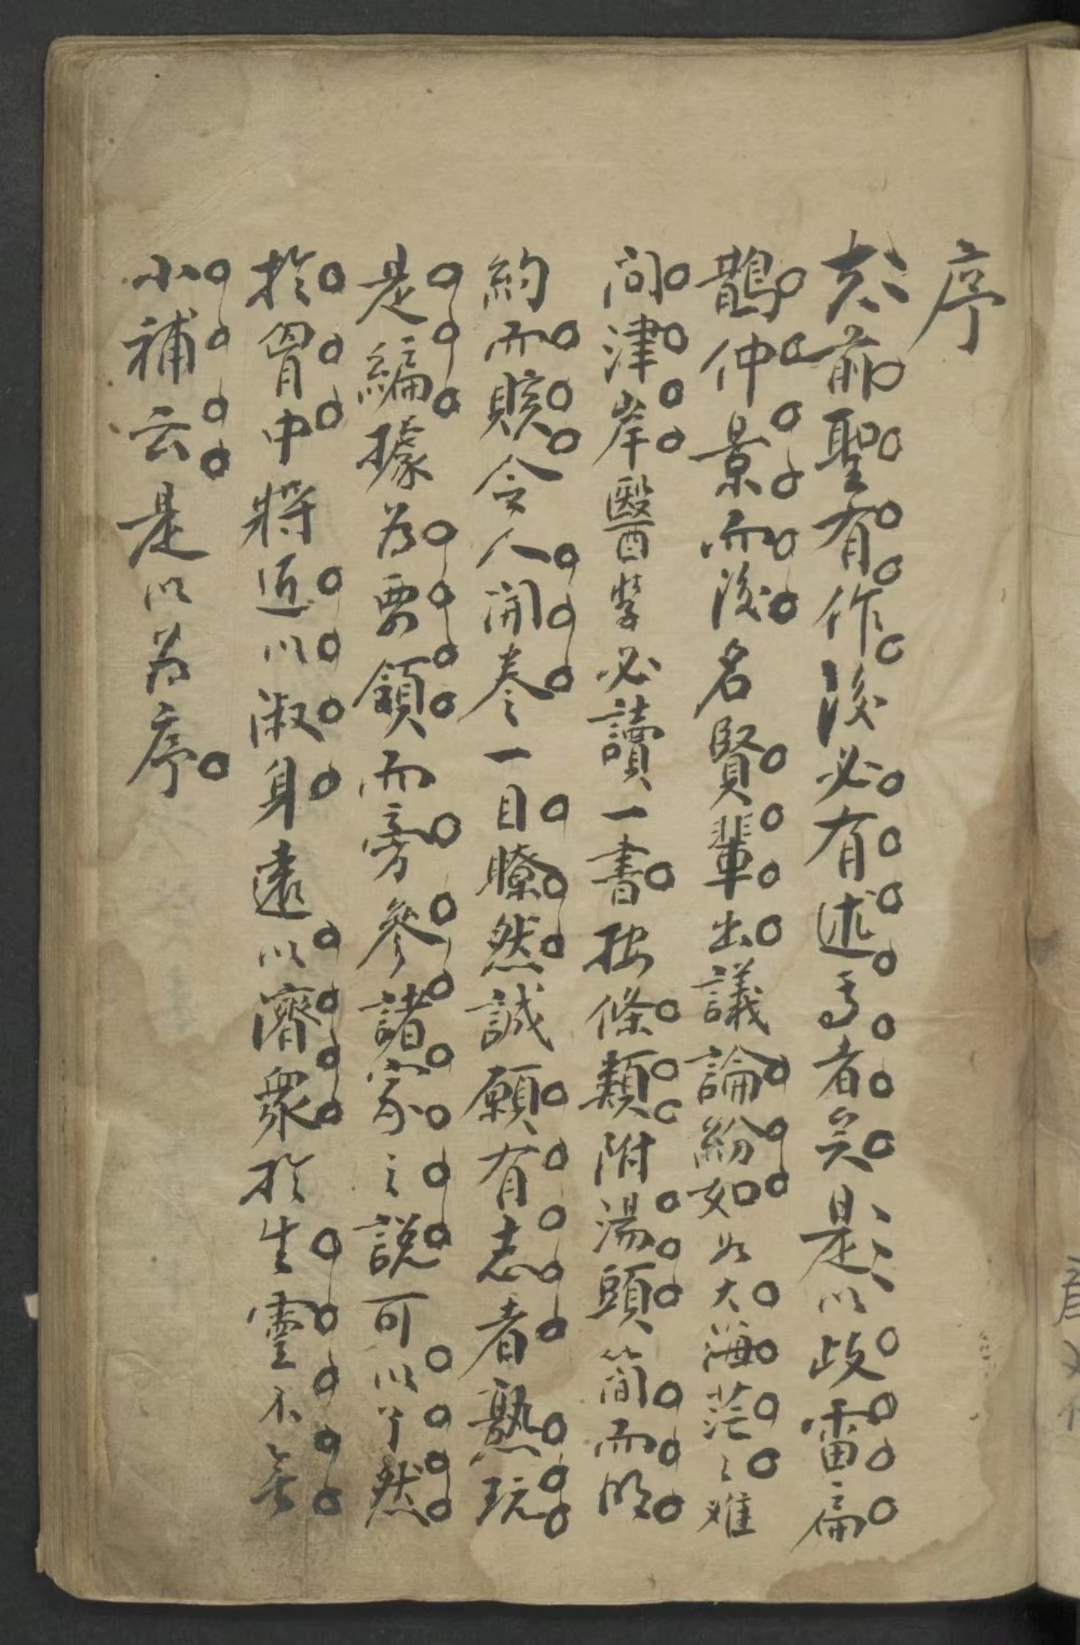 序
夫前聖有作後必有述焉者矣是以歧雷扁
鵲仲景而後名賢輩出議論紛如如大海茫々难
问津岸醫學必讀一書按條類附湯頭简而明
約而賅令人開卷一目瞭然誠願有志者熟玩
是編據為要領而旁參諸家之説可以了然
於胷中將近以淑身遠以濟衆於生靈不無
小補云是以為序